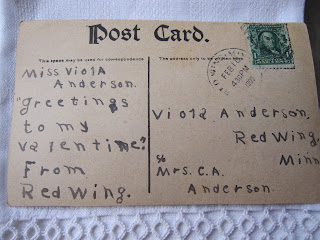 Post Card.
This space may be used for correspondence
The address only to be
Miss Viola
Anderson.
"Greetings
to my
valentine."
From
Red Wing.
FEB
430PM
Viola Anderson,
Red Wing,
Minn
%
Mrs. C.A.
Anderson.